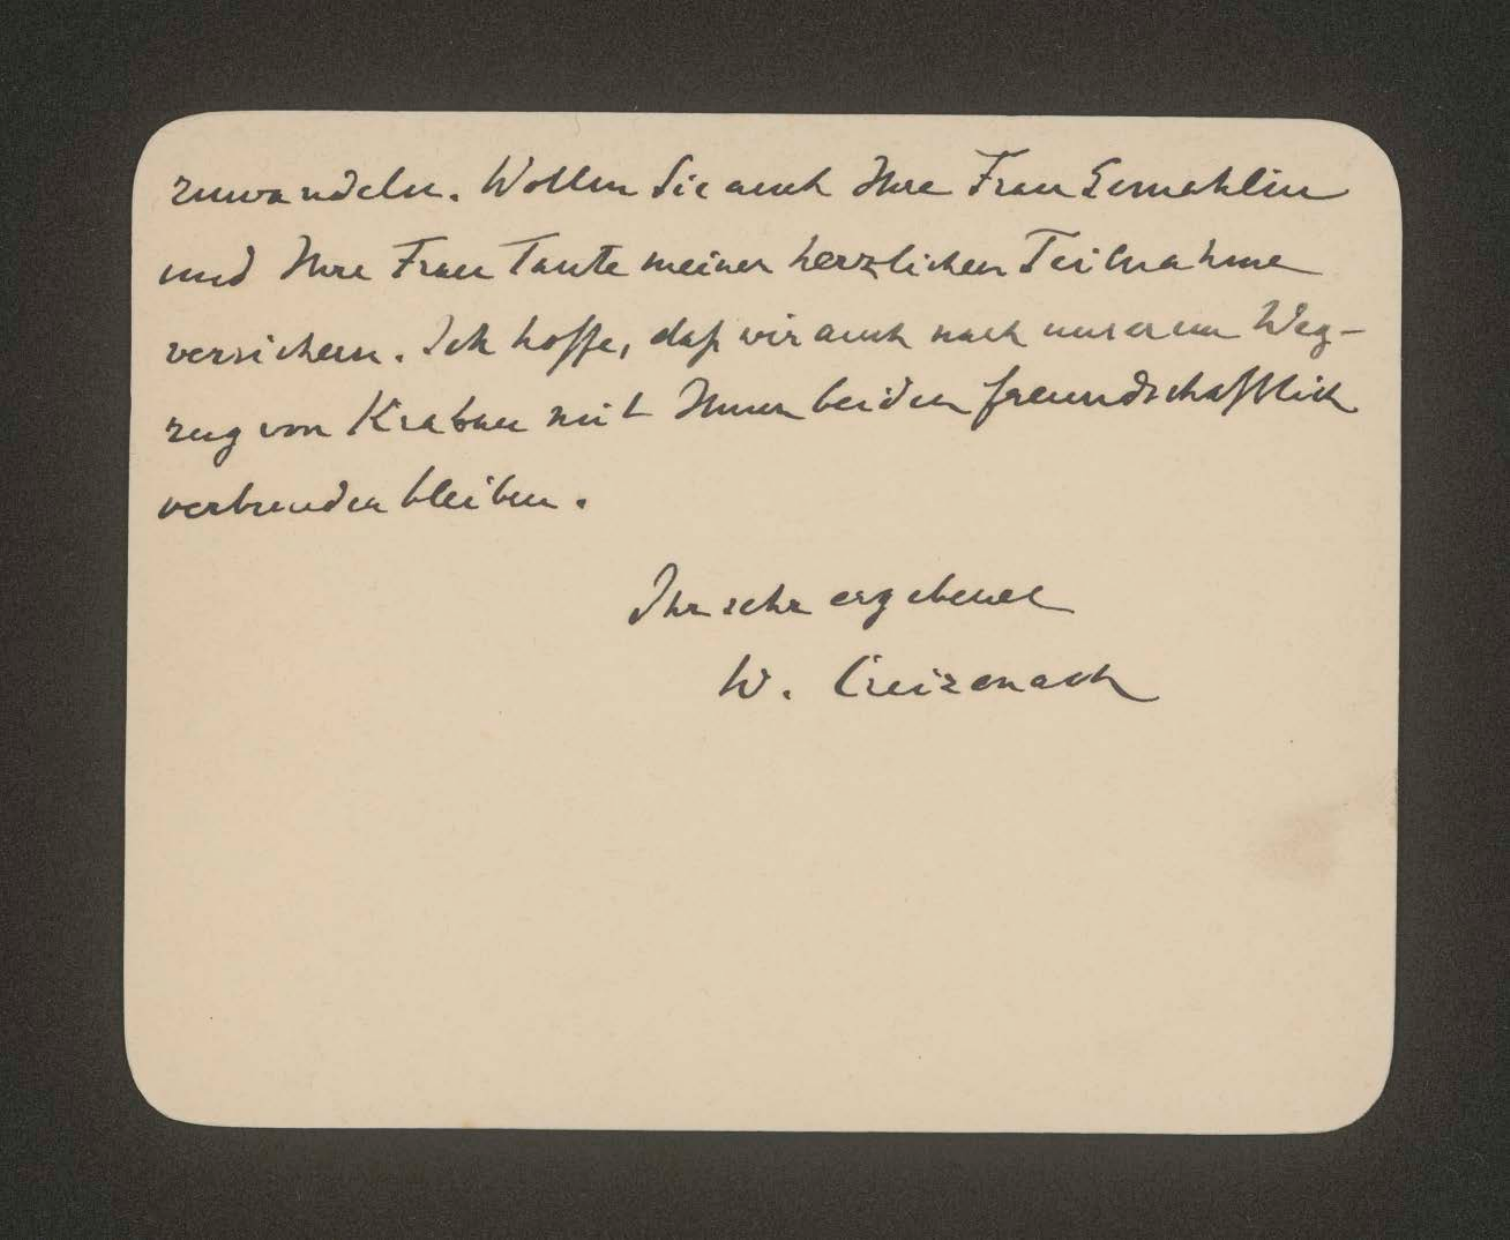 zuwandeln. Wollen Sie auch Ihre Frau Gemahlin
und Ihre Frau Tante meiner herzlichen Teilnahme
versichern. Ich hoffe, daß wir auch nach unserem Weg-
zug von Krakau mit Ihnen beiden freundschaftlich
verbunden bleiben.
Ihr sehr ergebener
W. Creizenach